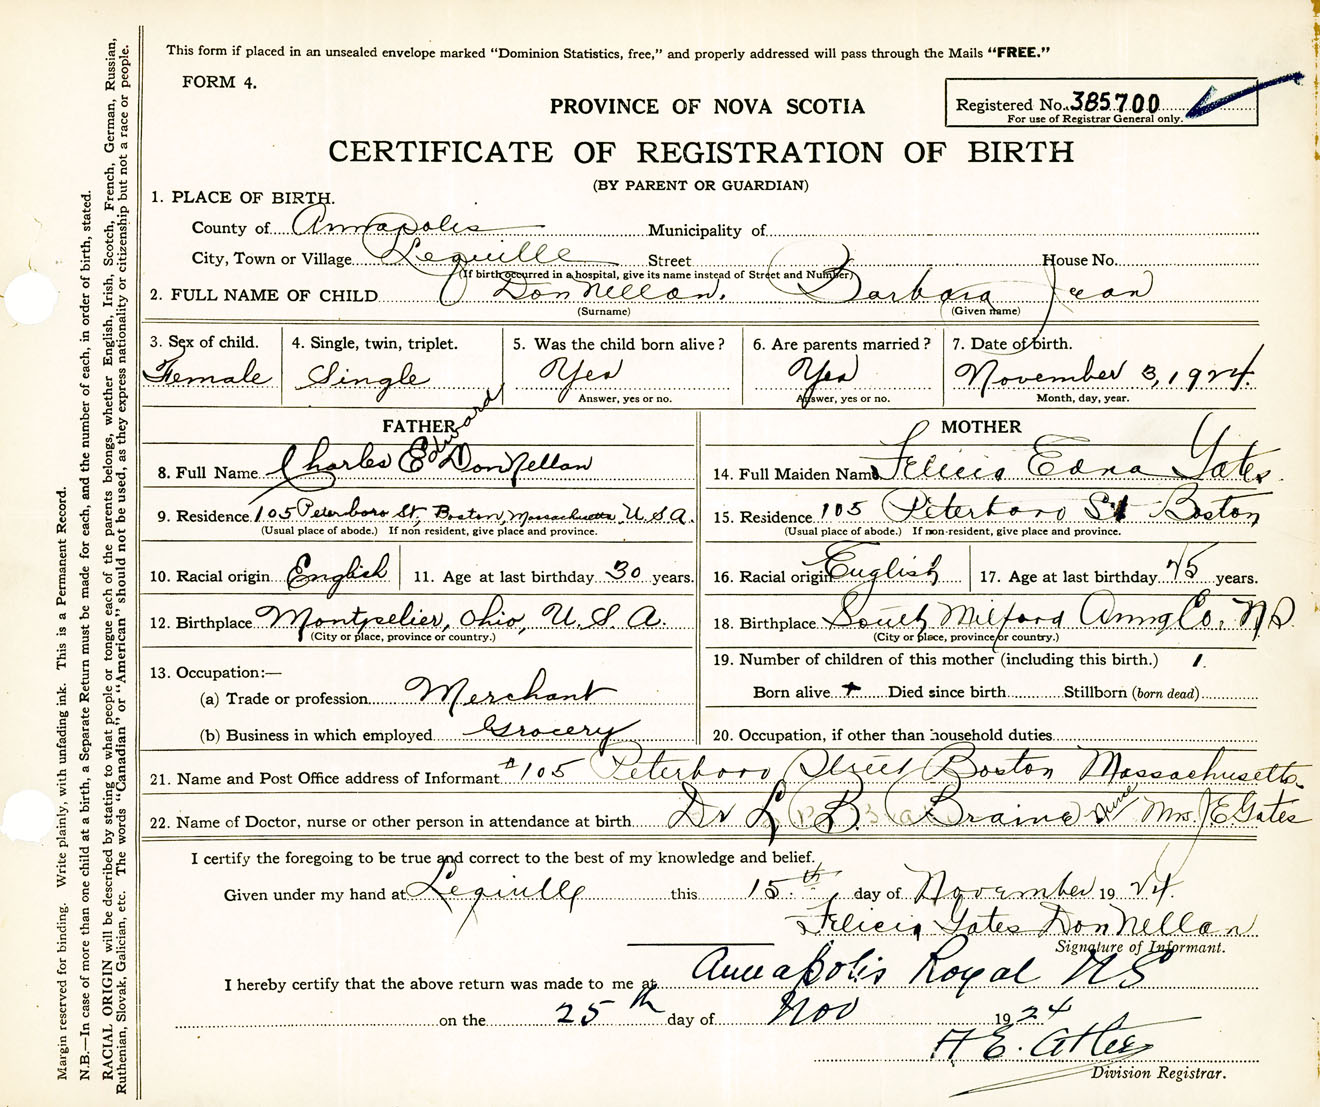 This form if placed in an unsealed envelope marked "Dominion Statistics, free," and properly addressed will pass through the Mails "FREE."
FORM 4.
PROVINCE OF NOVA SCOTIA
Registered No. 385700
For use of Registrar General only.
CERTIFICATE OF REGISTRATION OF BIRTH
(BY PARENT OR GUARDIAN)
1. PLACE OF BIRTH.
County of Annapolis Municipality of
City, Town or Village Lequille Street House No.
(If birth occurred in a hospital, give its name instead of Street and Number)
2. FULL NAME OF CHILD DonNellan. Barbara Jean
(Surname) (Given name)
3. Sex of child. 4. Single, twin, triplet. 5. Was the child born alive? 6. Are parents married? 7. Date of birth.
Female Single Yes Yes November 3, 1924.
Answer, yes or no. Answer, yes or no. Month, day, year.
FATHER
8. Full Name Charles Edward DonNellan
9. Residence 105 Peterboro St, Boston, Massachusetts, U.S.A.
(Usual place of abode.) If non resident, give place and province.
10. Racial origin English 11. Age at last birthday 30 years.
12. Birthplace Montpelier, Ohio, U.S.A.
(City or place, province or country.)
13. Occupation:—
(a) Trade or profession Merchant
(b) Business in which employed Grocery
MOTHER
14. Full Maiden Name Felicia Edna Yates
15. Residence 105 Peterboro St Boston
(Usual place of abode.) If non-resident, give place and province.
16. Racial origin English 17. Age at last birthday years.
18. Birthplace South Milford Anna Co. N.S.
(City or place, province or country.)
19. Number of children of this mother (including this birth.) 1.
Born alive + Died since birth Stillborn (born dead)
20. Occupation, if other than household duties
21. Name and Post Office address of Informant #105 Peterboro Street Boston Massachusetts.
22. Name of Doctor, nurse or other person in attendance at birth Dr L. B. Braine Nurse Mrs. J E Gates
I certify the foregoing to be true and correct to the best of my knowledge and belief.
Given under my hand at Lequille this 15th day of November 1924.
Felicia Yates DonNellan
Signature of Informant.
I hereby certify that the above return was made to me at Annapolis Royal NS
on the 25th day of Nov 1924
H E. Atlee
Division Registrar.
Margin reserved for binding. Write plainly, with unfading ink. This is a Permanent Record.
N.B.—In case of more than one child at a birth, a Separate Return must be made for each, and the number of each, in order of birth, stated.
RACIAL ORIGIN will be described by stating to what people or tongue each of the parents belongs, whether English, Irish, Scotch, French, German, Russian,
Ruthenian, Slovak, Galician, etc. The words "Canadian" or "American" should not be used, as they express nationality or citizenship but not a race or people.